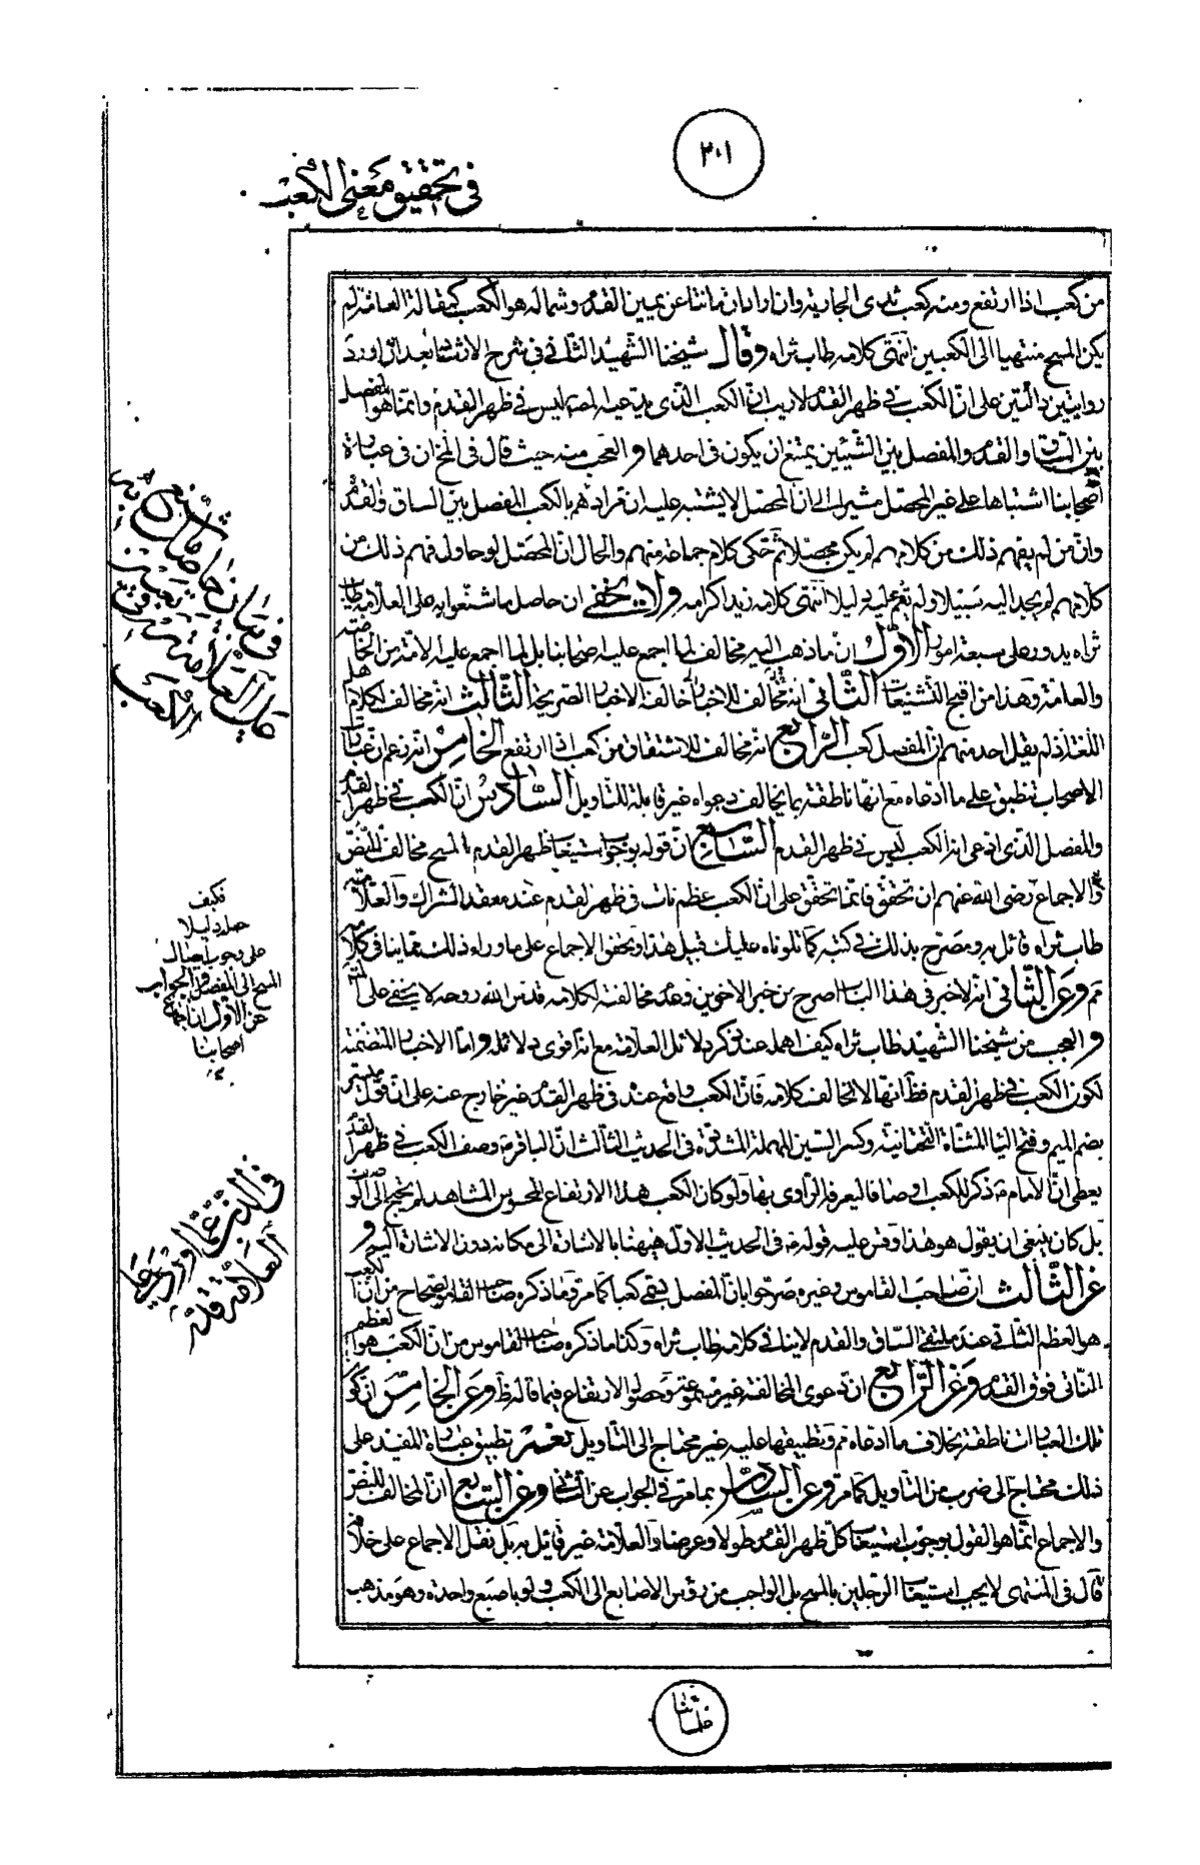 ٣٠١
في تحقيق معنى الكعب
من كعب اذا ارتفع ومنه كعب ثدي الجارية وان اراد ان ما نتا عن يمين القدم وشماله هو الكعب كمقالة العامة لم
يكن المسح منتهيا الى الكعبين انتهى كلامه طاب ثراه وقال شيخنا الشهيد الثاني في شرح الارشاد بعد ان اورد
روايتين دالتين على ان الكعب في ظهر القدم لا ريب ان الكعب الذي يدعيه المصنف ليس في ظهر القدم وانما هو المفصل
بين الساق والقدم والمفصل بين الشيئين يمتنع ان يكون في احدهما والعجب منه حيث قال في المخ ان في عبارة
اصحابنا اشتباها على غير المحصل مشيرا الى ان المحصل لا يشتبه عليه ان مرادهم بالكعب المفصل بين الساق والقدم
وان من لم يفهم ذلك من كلامهم لم يكن محصلا ثم حكى كلام جماعة منهم والحال ان المحصل لو حاول فهم ذلك من
كلامهم لم يجد اليه سبيلا ولم يقم عليه دليلا انتهى كلامه زيد اكرامه ولا يخفى ان حاصل ما شنعوا به على العلامة طاب
ثراه يدور على سبعة امور الاول ان ما ذهب اليه مخالف لما اجمع عليه اصحابنا بل لما اجمع عليه الامة من الخاصة
والعامة وهذا من اقبح التشنيعات الثاني انه مخالف للاخبار الصريحة الثالث انه مخالف لكلام اهل
اللغة اذ لم يقل احد منهم ان المفصل كعب الرابع انه مخالف للاشتقاق من كعب اذا ارتفع الخامس انه زعم ان عبارات
الاصحاب تنطبق على ما ادعاه مع انها ناطقة بما يخالف دعواه غير قابلة للتاويل السادس ان الكعب في ظهر القدم
والمفصل الذي ادعى انه الكعب ليس في ظهر القدم السابع ان قوله بوجوب استيعاب ظهر القدم بالمسح مخالف للنص
والاجماع رضي الله عنهم ان تحقق فانما تحقق على ان الكعب عظم نات في ظهر القدم عند معقد الشراك والعلامة
طاب ثراه قائل به ومصرح بذلك في كتبه كما تلوناه عليك قبيل هذا وتحقق الاجماع على ما وراء ذلك مما ينافي كلامه
ثم وعن الثاني انه لا خبر في هذا الباب اصرح من خبر الاخوين وعدم مخالفته لكلامه قدس الله روحه لا يخفى على
والعجب من شيخنا الشهيد طاب ثراه كيف اهمله عند ذكر دلائل العلامة مع انه اقوى دلائله واما الاخبار المتضمنة
لكون الكعب في ظهر القدم فظ انها لا تخالف كلامه فان الكعب واقع عنده في ظهر القدم غير خارج عنه على ان قول ميسر
بضم الميم وفتح الياء المثناة التحتانية وكسر السين المهملة المشددة في الحديث الثالث ان الباقر ع وصف الكعب في ظهر القدم
يعطي ان الامام ع ذكر للكعب اوصافا ليعرفه الراوي بها ولو كان الكعب هذا الارتفاع المحسوس المشاهد لم يحتج الى الوصف
بل كان ينبغي ان يقول هو هذا وقس عليه قوله ع في الحديث الاول هيهنا بالاشارة الى مكانه دون الاشارة اليه و
عن الثالث ان صاحب القاموس وغيره صرحوا بان المفصل يسمى كعبا كما مر وما ذكره صاحب الصحاح من ان الكعب
هو العظم الناتئ عند ملتقى الساق والقدم لا ينافي كلامه طاب ثراه وكذا ما ذكره صاحب القاموس من ان الكعب هو العظم
الناتئ فوق القدم وعن الرابع ان دعوى المخالفة غير مسموعة وحصول الارتفاع فيما قاله ظ وعن الخامس ان كون
تلك العبارات ناطقة بخلاف ما ادعاه ثم وتطبيقها عليه غير محتاج الى التاويل نعم تطبيق عبارة المفيد على
ذلك محتاج الى ضرب من التاويل كما مر وعن السادس بما مر في الجواب عن الثاني وعن السابع ان المخالف للنص
والاجماع انما هو القول بوجوب استيعاب كل ظهر القدم طولا وعرضا والعلامة غير قائل به بل نقل الاجماع على خلافه
قال في المنتهى لا يجب استيعاب الرجلين بالمسح بل الواجب من رؤس الاصابع الى الكعب ولو باصبع واحدة وهو مذهب
في بيان حاصل ما شنع به
على العلامة في تعبيره
الكعب
فكيف
على وجوب ايصال
المسح الى المفصل والجواب
عن الاول ان اجماع
اصحابنا
في الذب عما اورد على
العلامة قده
علمائنا